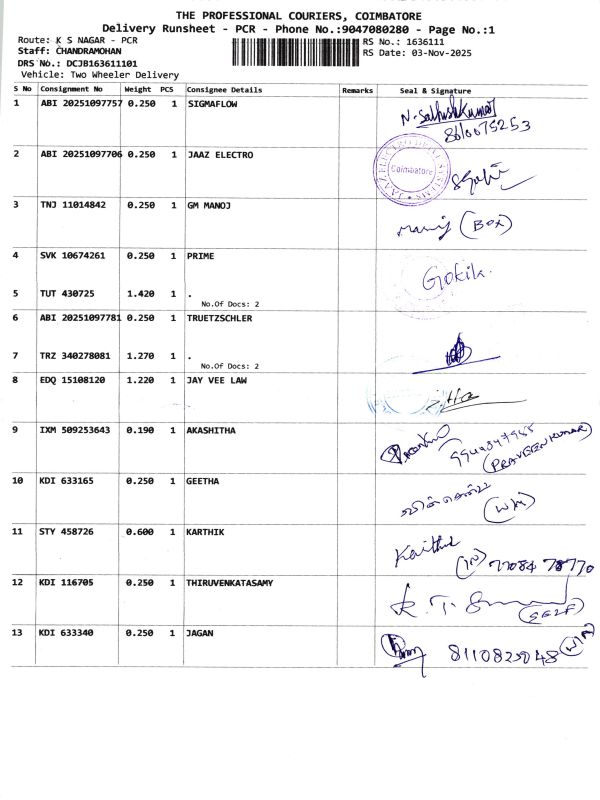 THE PROFESSIONAL COURIERS, COIMBATORE
Delivery Runsheet - PCR - Phone No.:9047080280 - Page No.:1
Route: K S NAGAR - PCR RS No.: 1636111
Staff: CHANDRAMOHAN RS Date: 03-Nov-2025
DRS No.: DCJB163611101
Vehicle: Two Wheeler Delivery
S No Consignment No Weight PCS Consignee Details Remarks Seal & Signature
1 ABI 20251097757 0.250 1 SIGMAFLOW N. Sathishkumar
8610075253
2 ABI 20251097706 0.250 1 JAAZ ELECTRO Coimbatore
3 TNJ 11014842 0.250 1 GM MANOJ Manoj (BOX)
4 SVK 10674261 0.250 1 PRIME Gokila.
5 TUT 430725 1.420 1 .
No.Of Docs: 2
6 ABI 20251097781 0.250 1 TRUETZSCHLER
7 TRZ 340278081 1.270 1 .
No.Of Docs: 2
8 EDQ 15108120 1.220 1 JAY VEE LAW
9 IXM 509253643 0.190 1 AKASHITHA
(PRAVEEN KUMAR)
10 KDI 633165 0.250 1 GEETHA
11 STY 458726 0.600 1 KARTHIK Karthik
(IN) 77084 78770
12 KDI 116705 0.250 1 THIRUVENKATASAMY
(SELF)
13 KDI 633340 0.250 1 JAGAN 8110825048